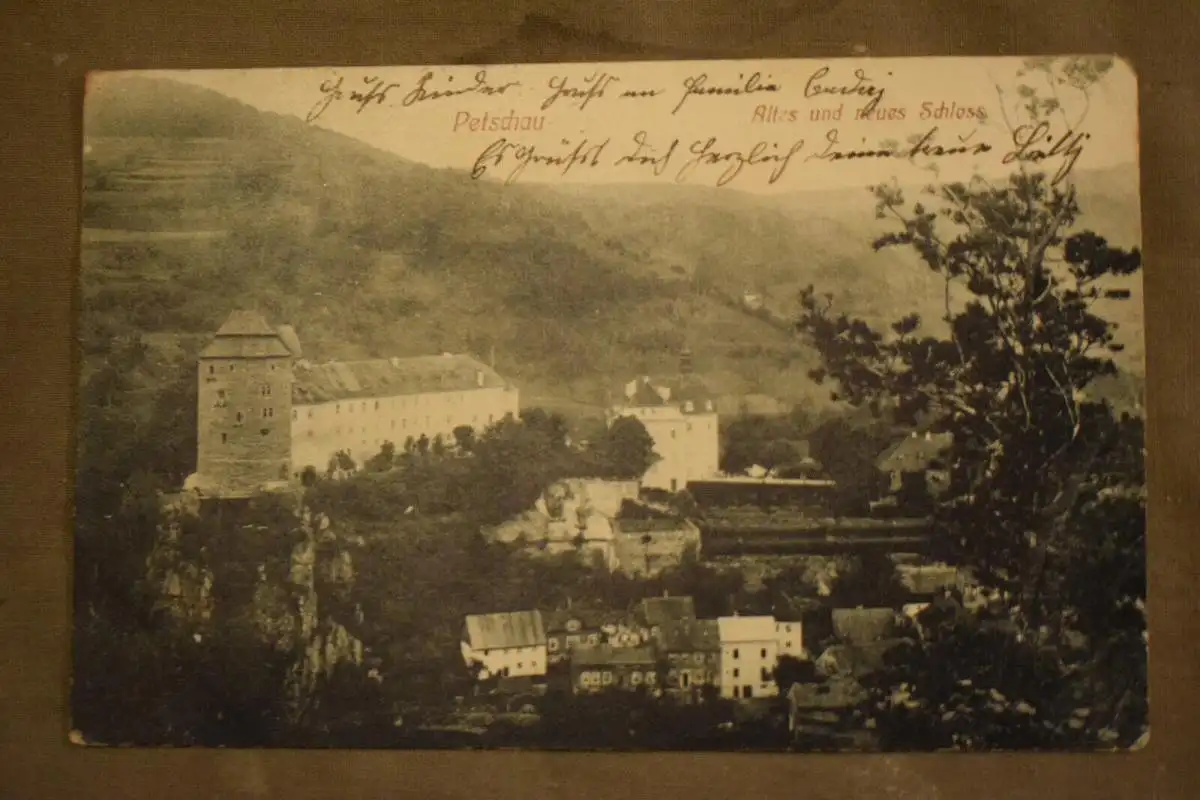 Gruss Kinder Gruss an Familie
Petschau Altes und neues Schloss
Es Grüsst Dich Herzlich Deine treue